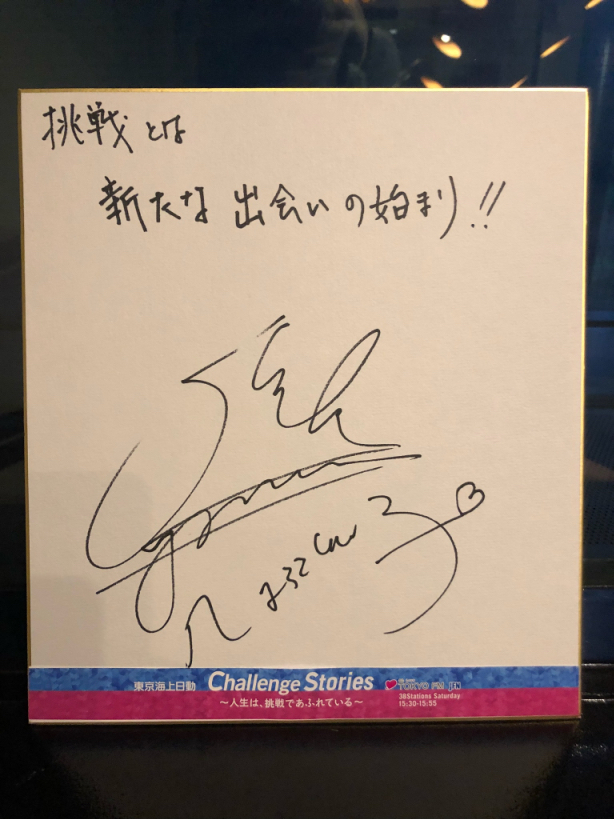 挑戦とは
新たな出会いの始まり!!
東京海上日動 Challenge Stories
～人生は、挑戦であふれている～
TOKYO FM JFN
38Stations Saturday
15:30-15:55